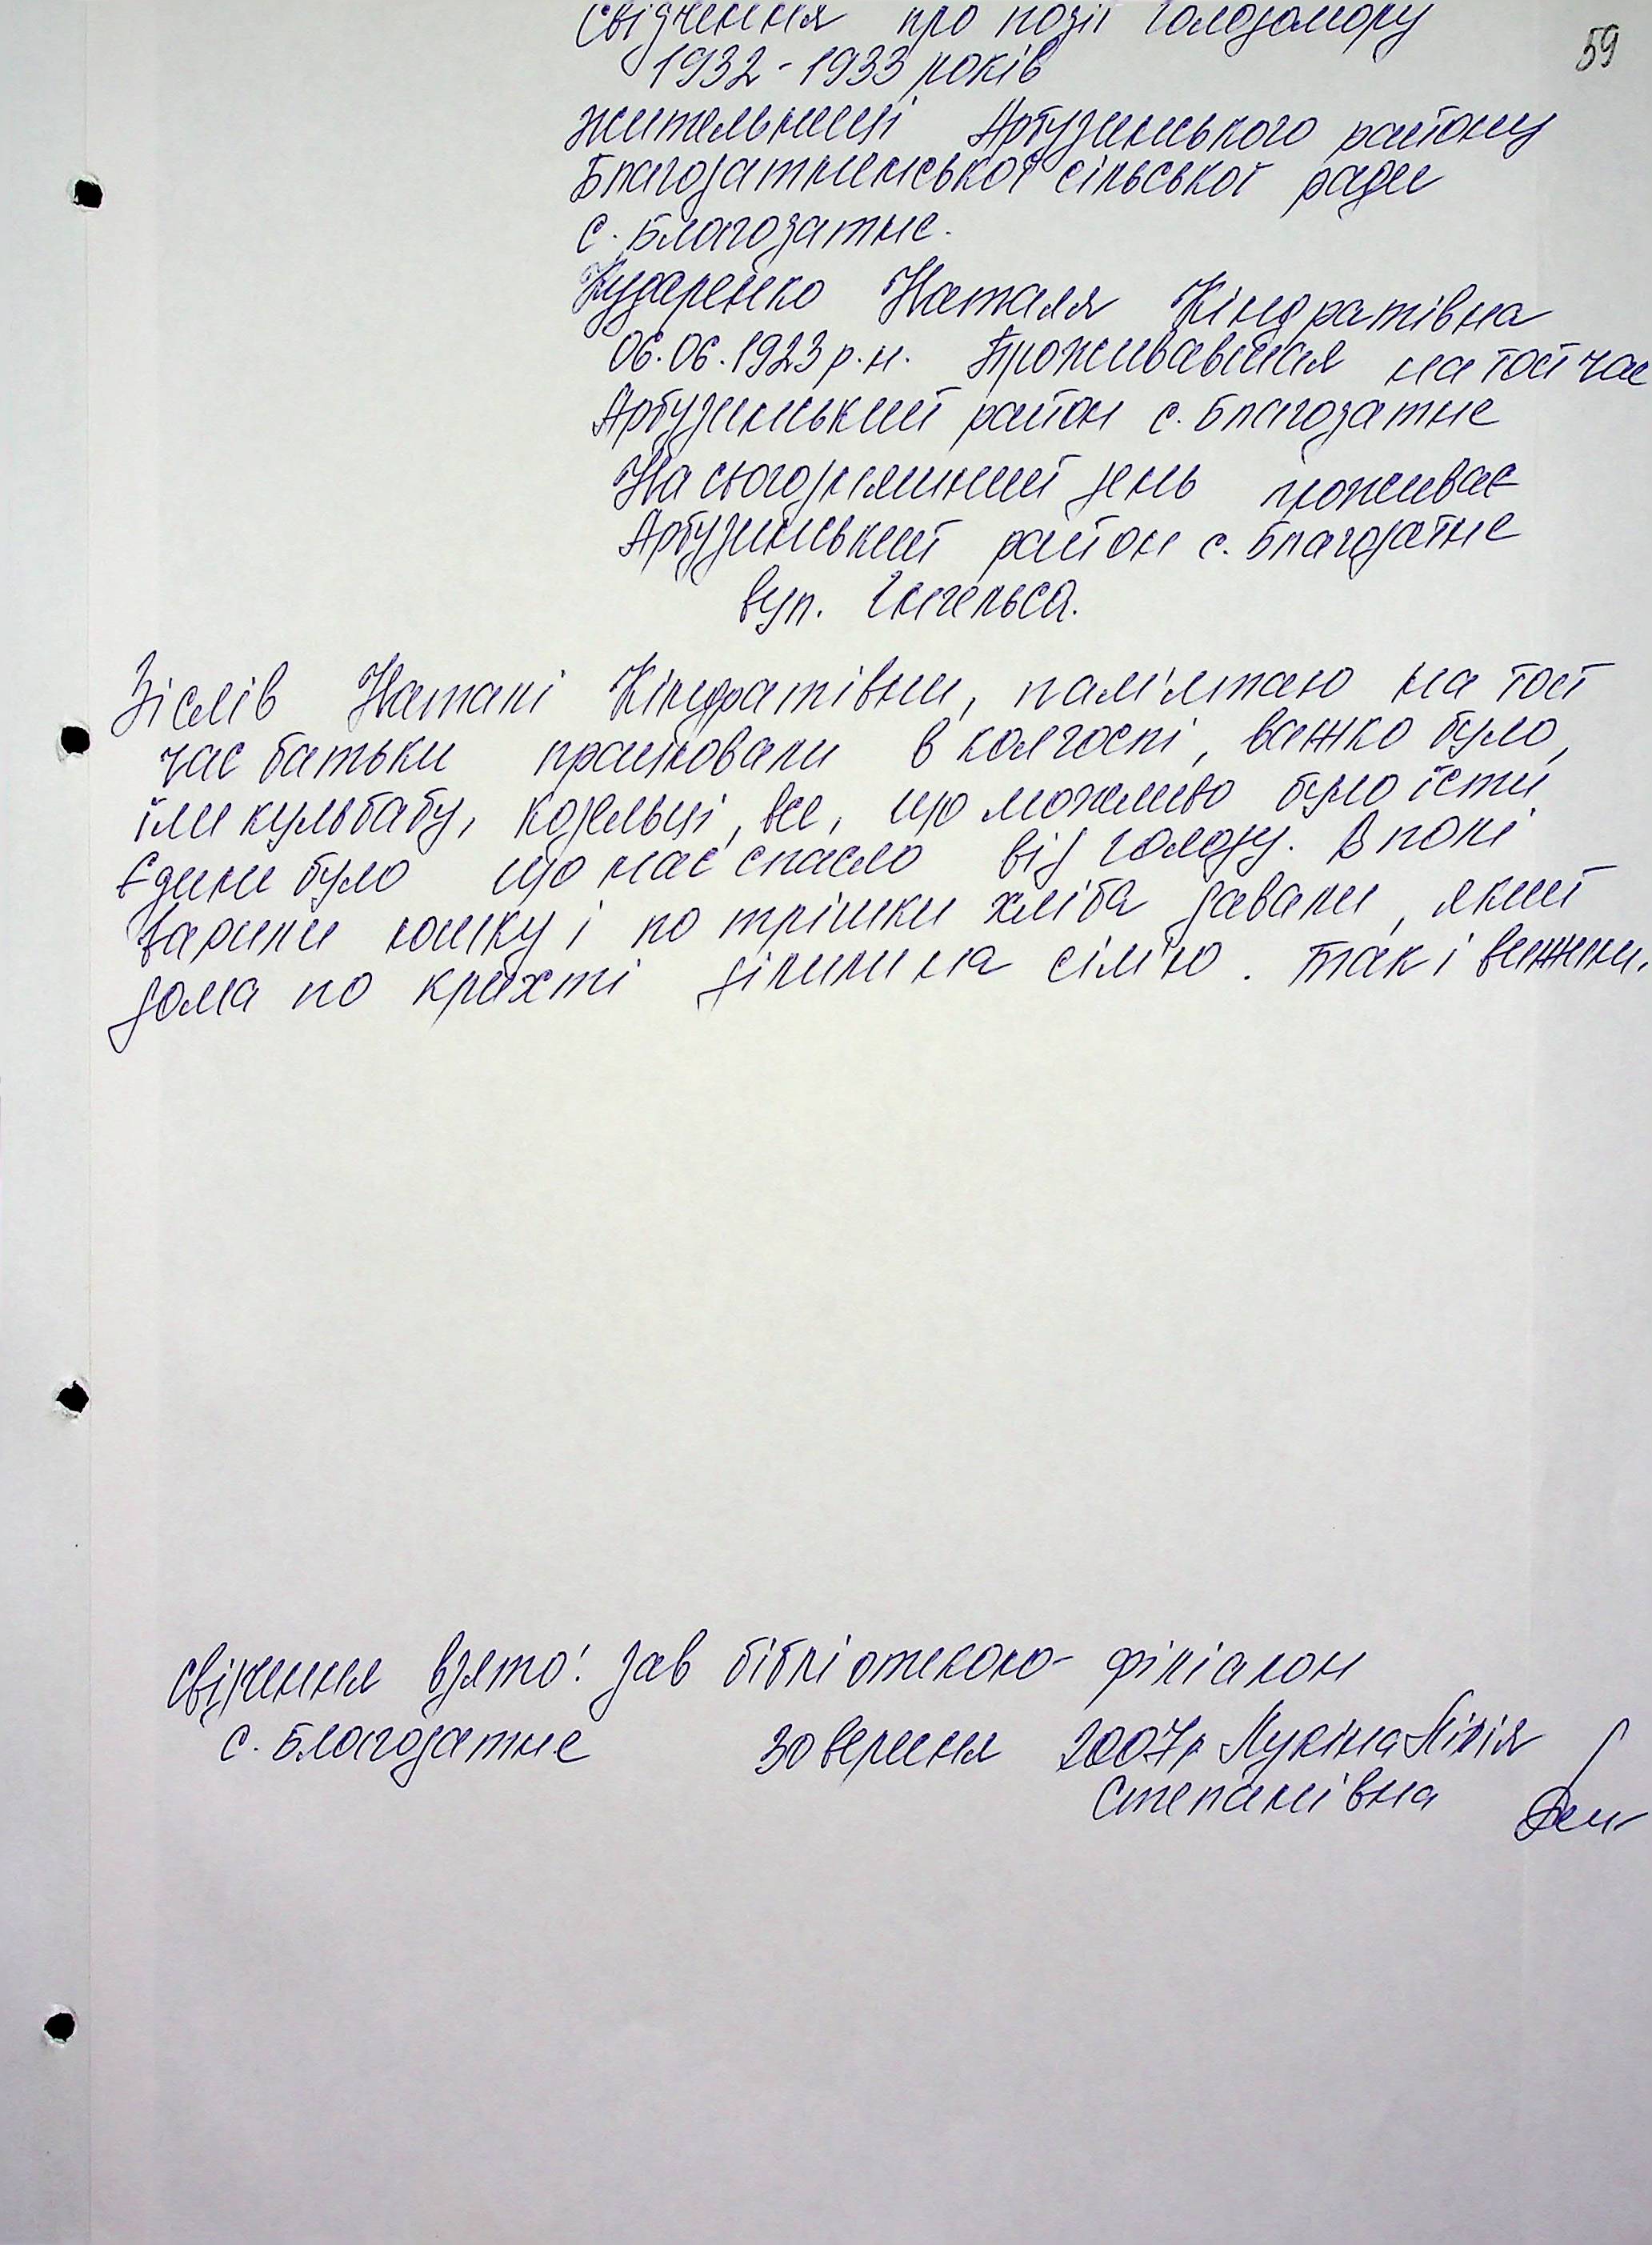 59
свідчення про події голодомору
1932-1933 років
жительниці Арбузинського району
Благодатненської сільської ради
с. Благодатне.
Кударенко Наталя Кіндратівна
06.06.1923 р.н. Проживавшая на той час
Арбузинський район с. Благодатне
На сьогоднішний день проживає
Арбузинський район с. Благодатне
вул. Енгельса.
Зіслів Наталі Кіндратівни, пам'ятаю на той
час батьки працювали в колгоспі, важко було,
їли кульбабу, козельці, все, що можливо було їсти.
Єдине було що нас спасло від голоду. В полі
варили юшку і по трішки хліба давали, який
дома по крихті ділили на сім'ю. Так і вижили.
свідчення взято: зав бібліотекою-філіалом
с. Благодатне 30 вересня 2007р Лукіна Лілія
Степанівна